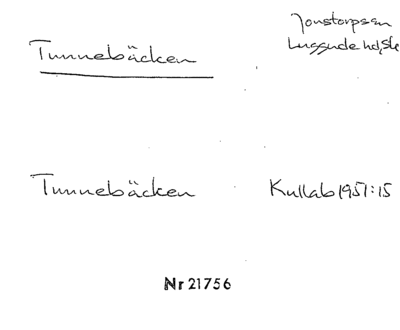 Tunnebäcken
Jonstorpssn
Luggude hd, Sk
Tunnebäcken
Kullab 1951:15
Nr 21756